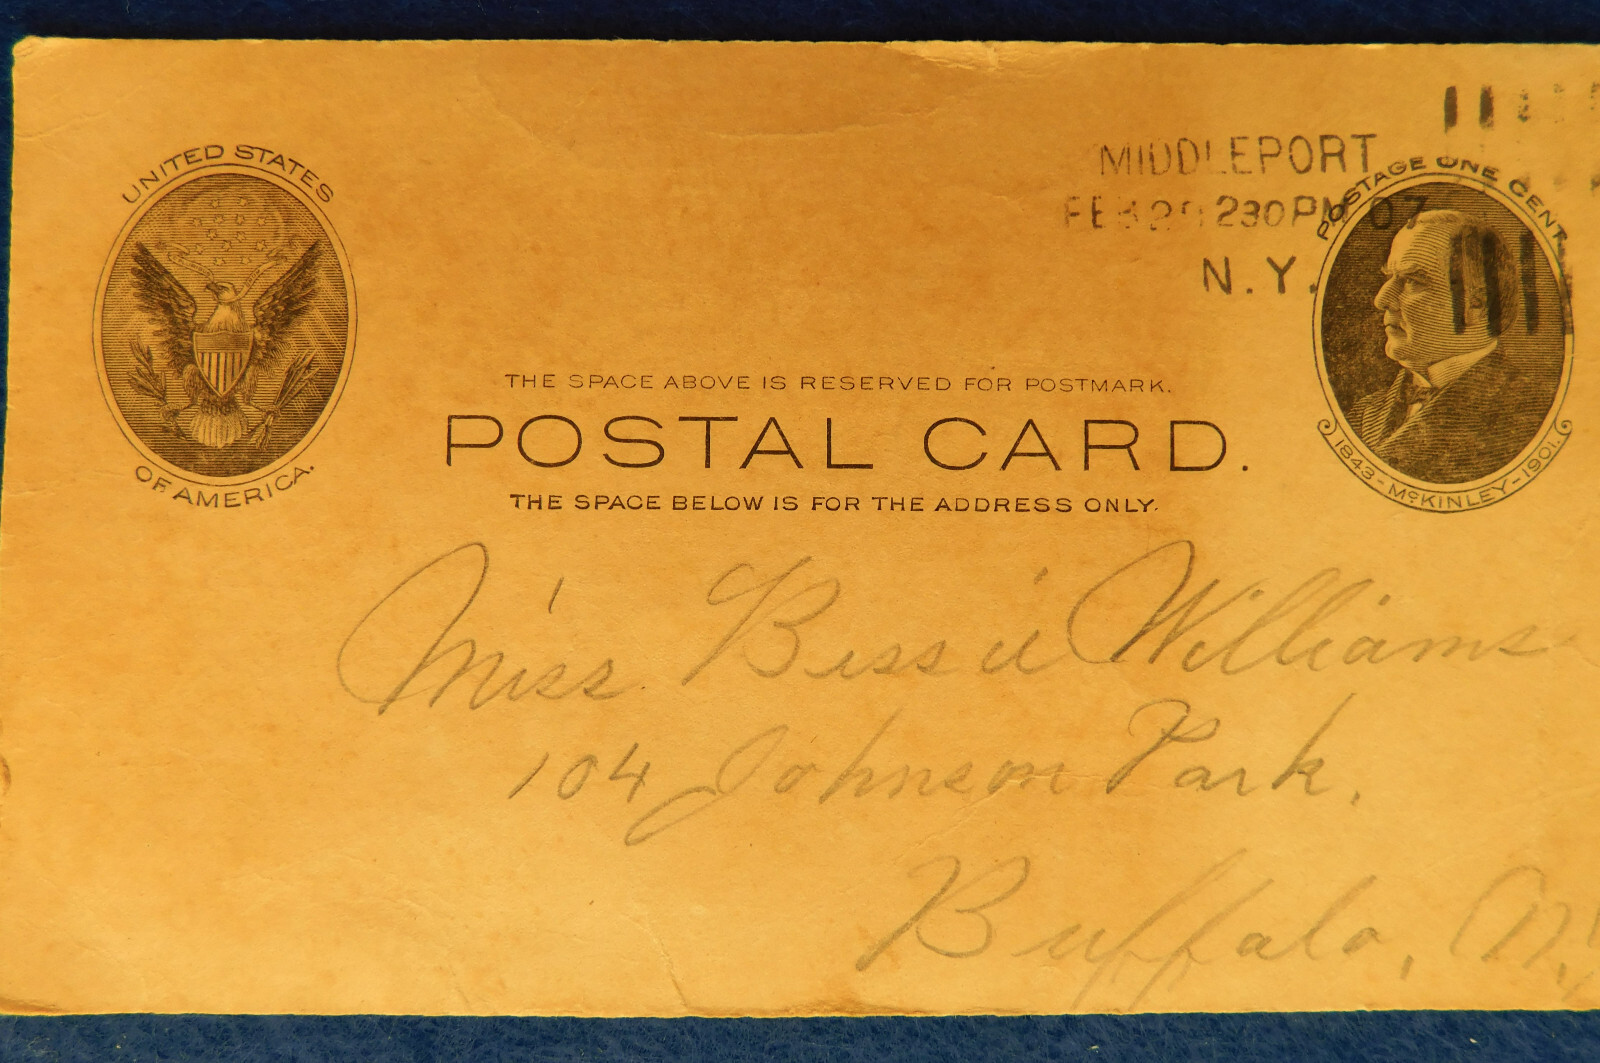 UNITED STATES
OF AMERICA.
MIDDLEPORT
FEB 230PM 07
N.Y.
POSTAGE ONE CENT
1843-McKINLEY-1901.
THE SPACE ABOVE IS RESERVED FOR POSTMARK.
POSTAL CARD.
THE SPACE BELOW IS FOR THE ADDRESS ONLY.
Miss Bessie Williams
104 Johnson Park.
Buffalo, N.Y